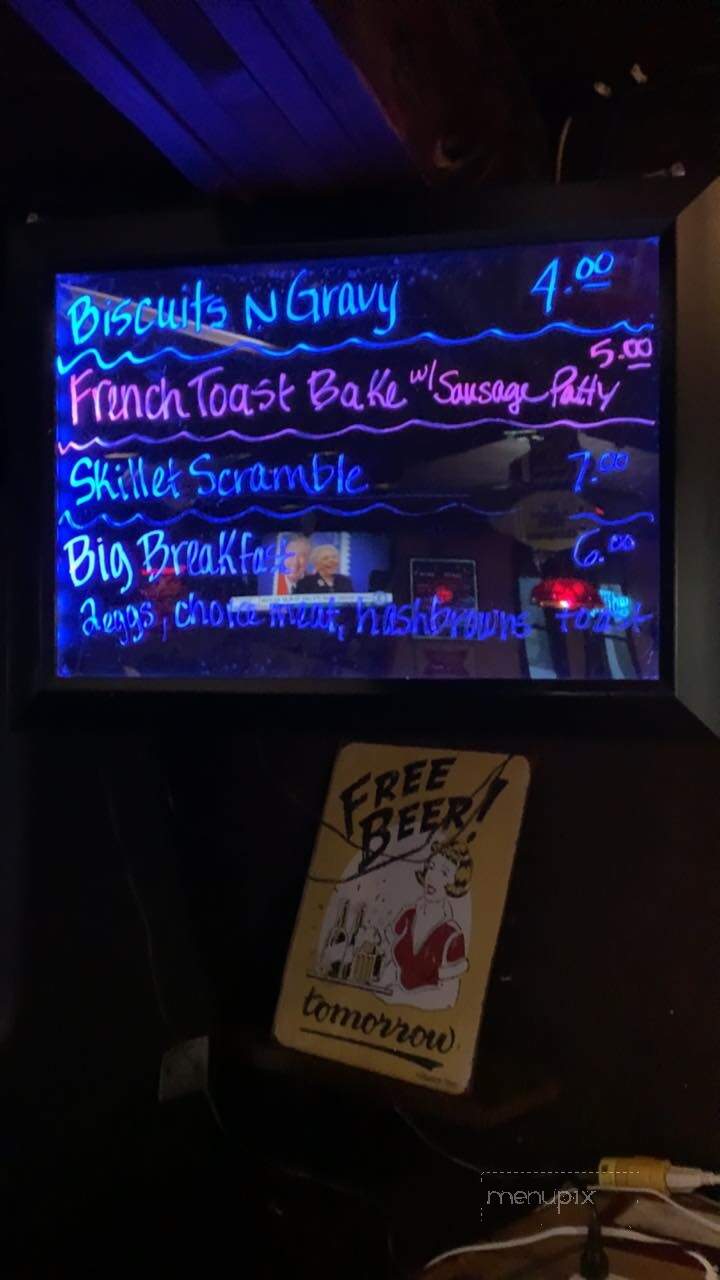 Biscuits N Gravy 4.00
5.00
French Toast Bake w/ Sausage Patty
Skillet Scramble 7.00
Big Breakfast 6.00
2eggs, choice meat, hashbrowns toast
FREE
BEER!
tomorrow
menupix